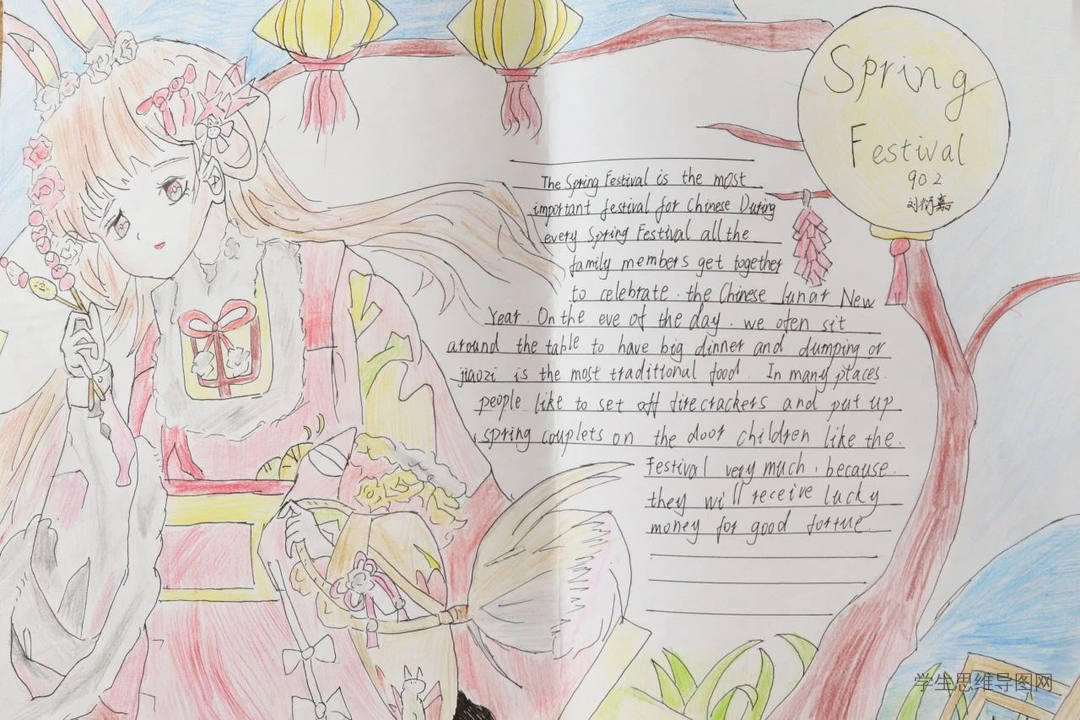 Spring
Festival
902
The Spring Festival is the most
important festival for Chinese During
every Spring Festival all the
family members get together
to celebrate. the Chinese lunar New
Year. On the eve of the day. we ofen sit
around the table to have big dinner and dumping or
jiaozi is the most traditional food. In many places.
people like to set off firecrackers and put up
spring couplets on the door children like the.
Festival very much, because.
they will receive lucky
money for good fortue.
学生思维导图网